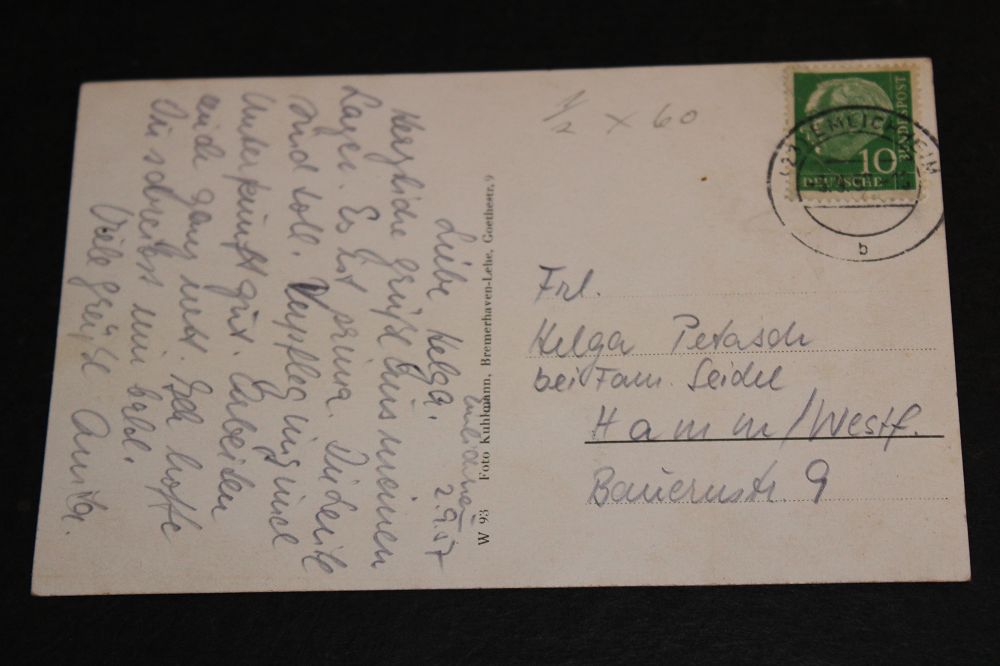 2.9.57
Liebe Helga.
Herzliche Grüße aus meinen
Lager. Es ist prima. Die Leute
sind toll. Verpflegung und
Unterkunft gut. Arbeiten
auch ganz nett. Ich hoffe
Du schreibst mir bald.
Viele Grüße Anita.
W 93 Foto Kuhlmann, Bremerhaven-Lehe, Goethestr. 9
1/2 x 60
10
DEUTSCHE
BUNDESPOST
EMLICHHEIM
b
Frl.
Helga Petasch
bei Fam. Seidel
Hamm/Westf.
Bauernstr. 9